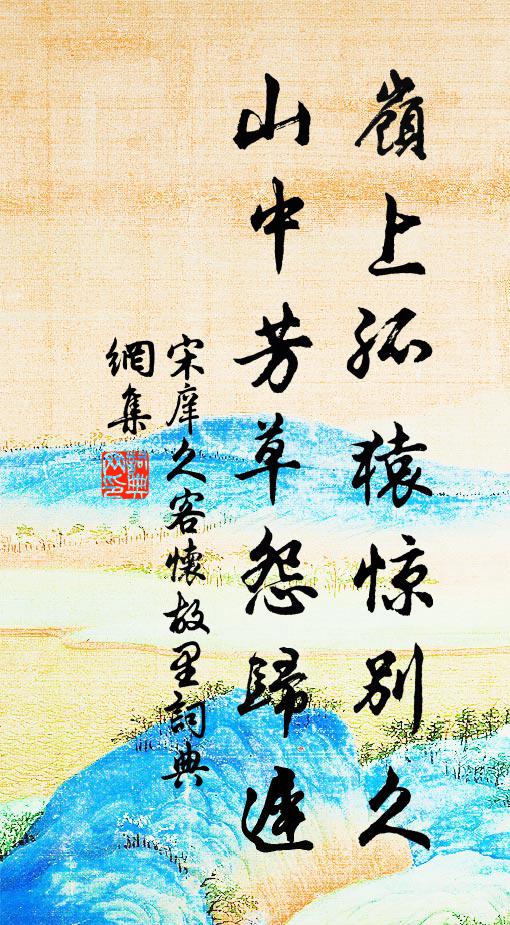 嶺上孤猿惊别久
山中芳草怨歸遲
宋庠久客懷故里詞典
網集
詞典